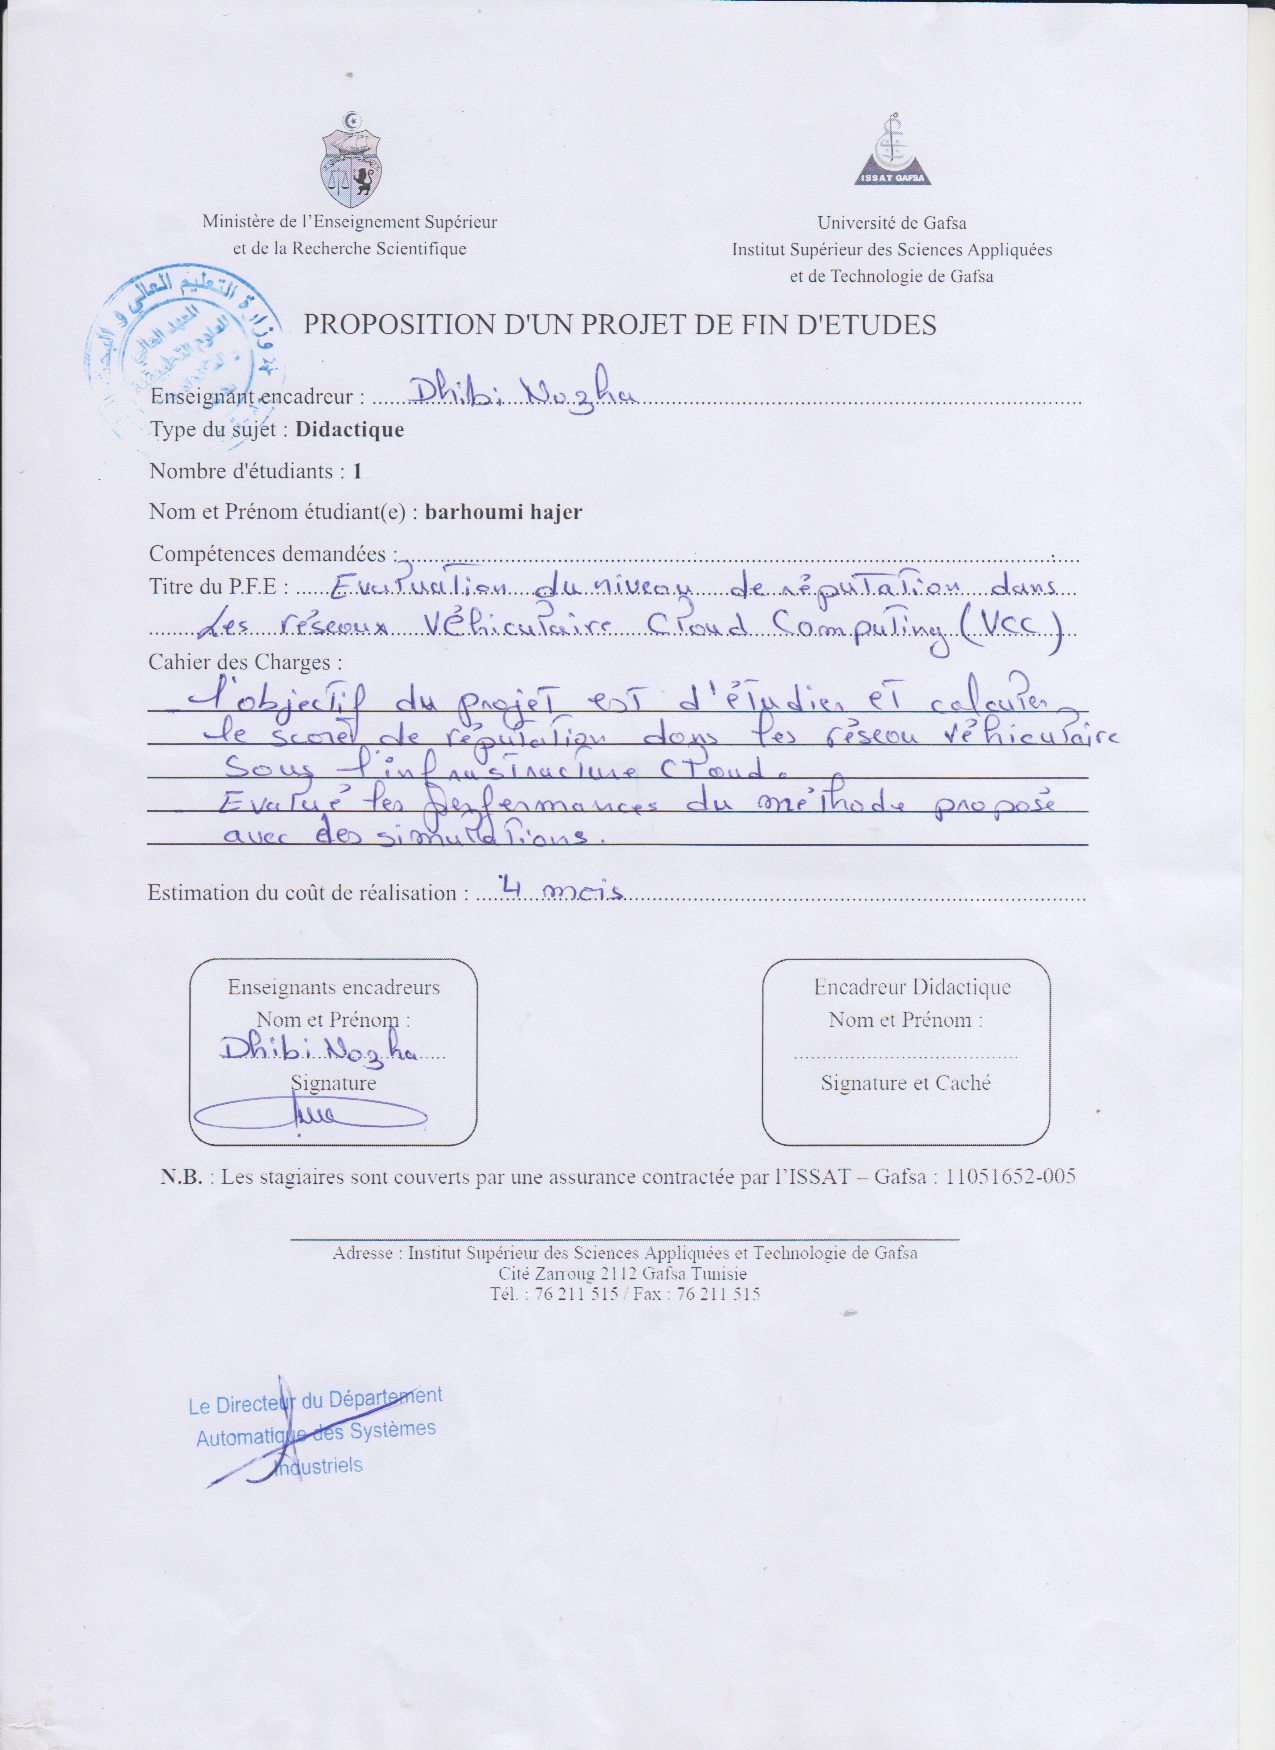 ISSAT GAFSA
Ministère de l'Enseignement Supérieur
et de la Recherche Scientifique
Université de Gafsa
Institut Supérieur des Sciences Appliquées
et de Technologie de Gafsa
وزارة التعليم العالي و البحث
المعهد العالي
للعلوم التطبيقية
PROPOSITION D'UN PROJET DE FIN D'ETUDES
Enseignant encadreur : Dhibi Nozha
Type du sujet : Didactique
Nombre d'étudiants : 1
Nom et Prénom étudiant(e) : barhoumi hajer
Compétences demandées :
Titre du P.F.E : Evaluation du niveau de réputation dans
Les réseaux Véhiculaire Cloud Computing (VCC)
Cahier des Charges :
L'objectif du projet est d'étudier et calculer
le score de réputation dans les réseau véhiculaire
Sous l'infrastructure Cloud.
Evalué les perfermances du méthode proposé
avec des simulations.
Estimation du coût de réalisation : 4 mois
Enseignants encadreurs
Nom et Prénom :
Dhibi Nozha
Signature
Encadreur Didactique
Nom et Prénom :
Signature et Caché
N.B. : Les stagiaires sont couverts par une assurance contractée par l'ISSAT – Gafsa : 11051652-005
Adresse : Institut Supérieur des Sciences Appliquées et Technologie de Gafsa
Cité Zarroug 2112 Gafsa Tunisie
Tél. : 76 211 515 / Fax : 76 211 515
Le Directeur du Département
Automatique des Systèmes
Industriels